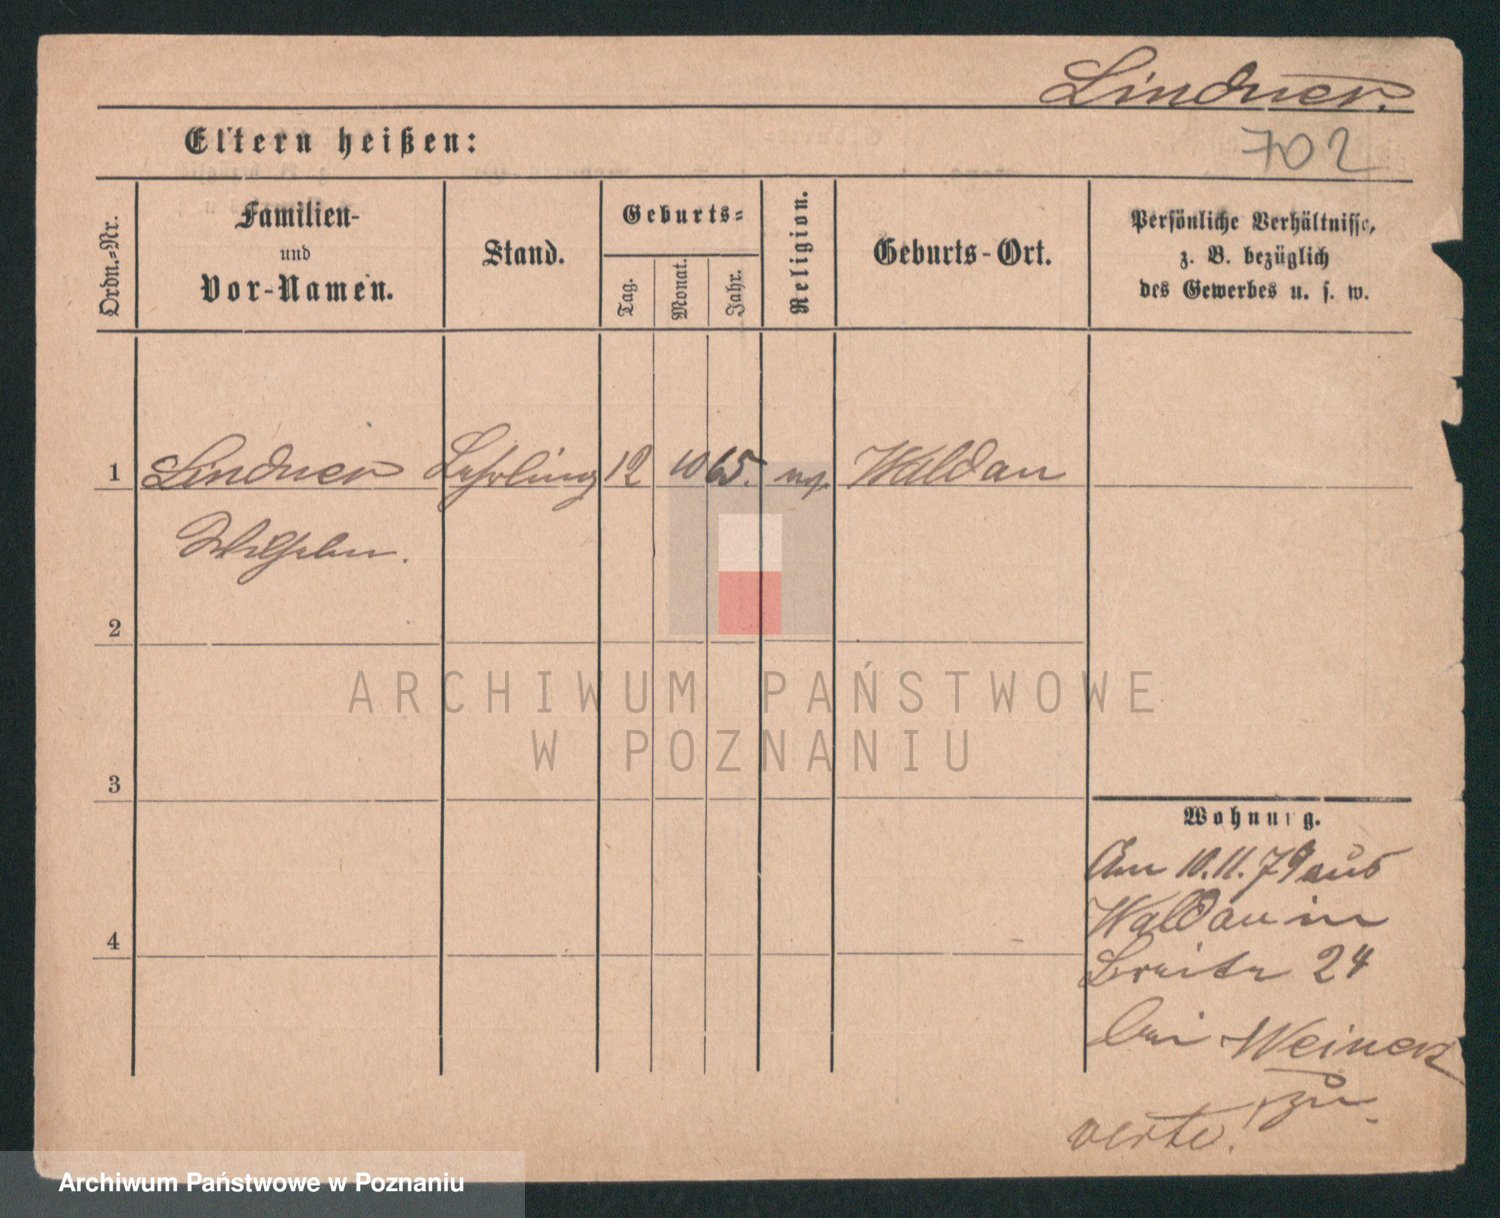 Lindner.
702
Eltern heißen:
Ordn.-Nr.
Familien-
und
Vor-Namen.
Stand.
Geburts-
Tag.
Monat.
Jahr.
Religion.
Geburts-Ort.
Persönliche Verhältnisse,
z. B. bezüglich
des Gewerbes u. s. w.
1 Lindner Lehrling 12 10 65. Waldau
Wilhelm.
2
3
4
Wohnung.
Am 10.11.79 aus
Waldau in
Breite 24
bei Weinert
zu
verte.
ARCHIWUM PAŃSTWOWE
W POZNANIU
Archiwum Państwowe w Poznaniu